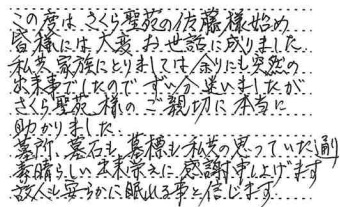 この度は さくら聖苑の佐藤様始め
皆様には大変お世話に成りました
私共家族にとりましては余りにも突然の
出来事でしたので ずい分迷いましたが
さくら聖苑様のご親切に本当に
助かりました
墓所、墓石も墓標も私共の思っていた通り
素晴らしい出来栄えに感謝申し上げます
故人も安らかに眠れる事と信じます